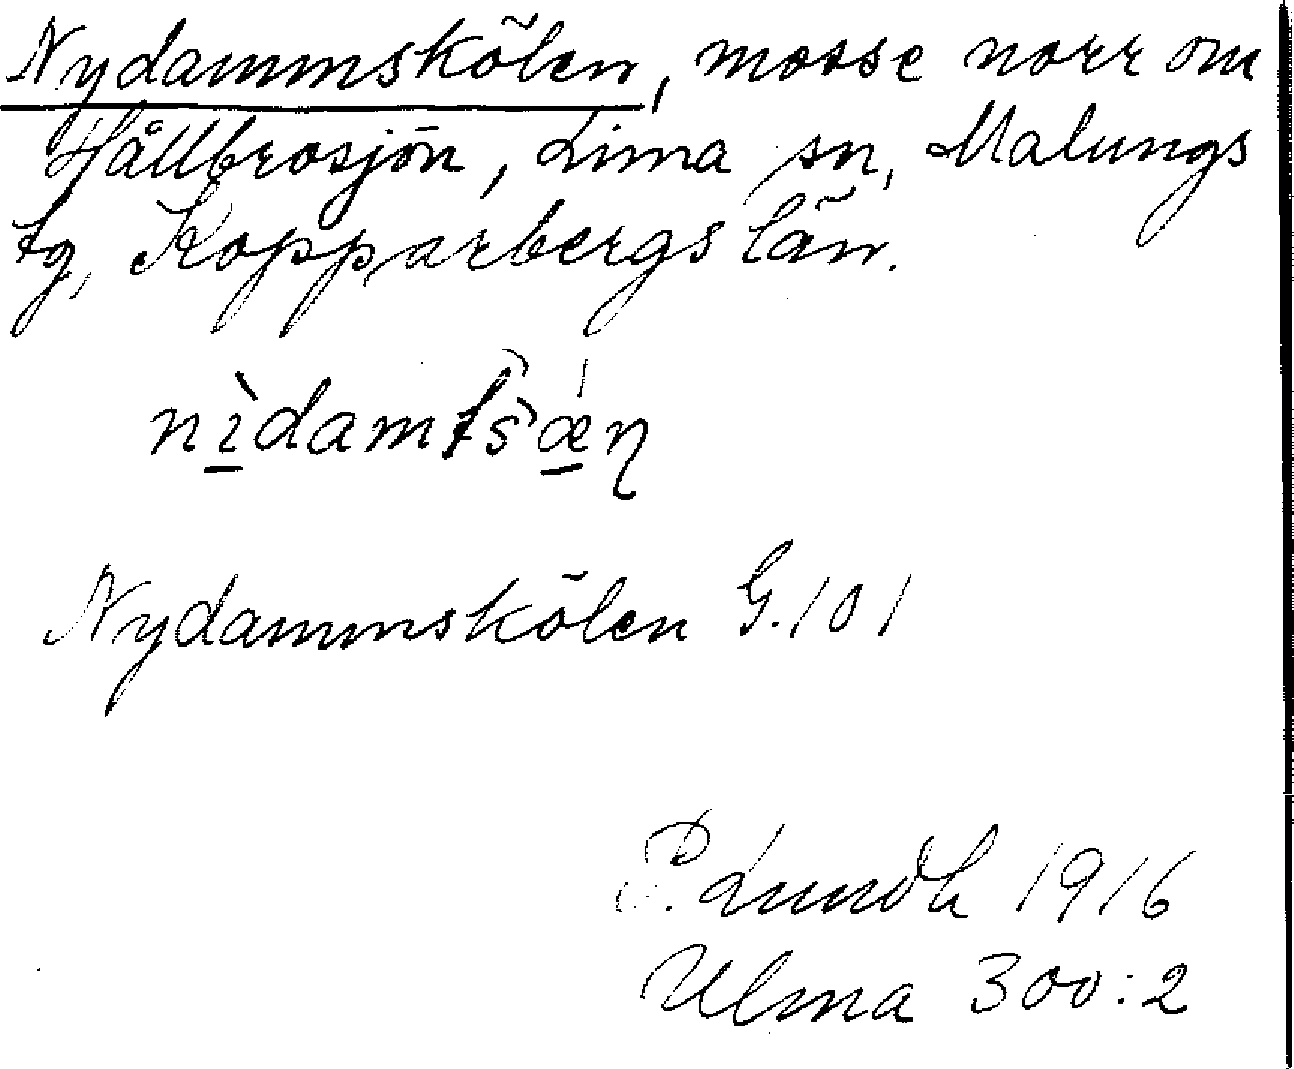 Nydammskölen, mosse norr om
Hållbrosjön, Lima sn, Malungs
tg, Kopparbergs län.
Nydammskölen G.101
P. Lundh 1916
Ulma 300:2